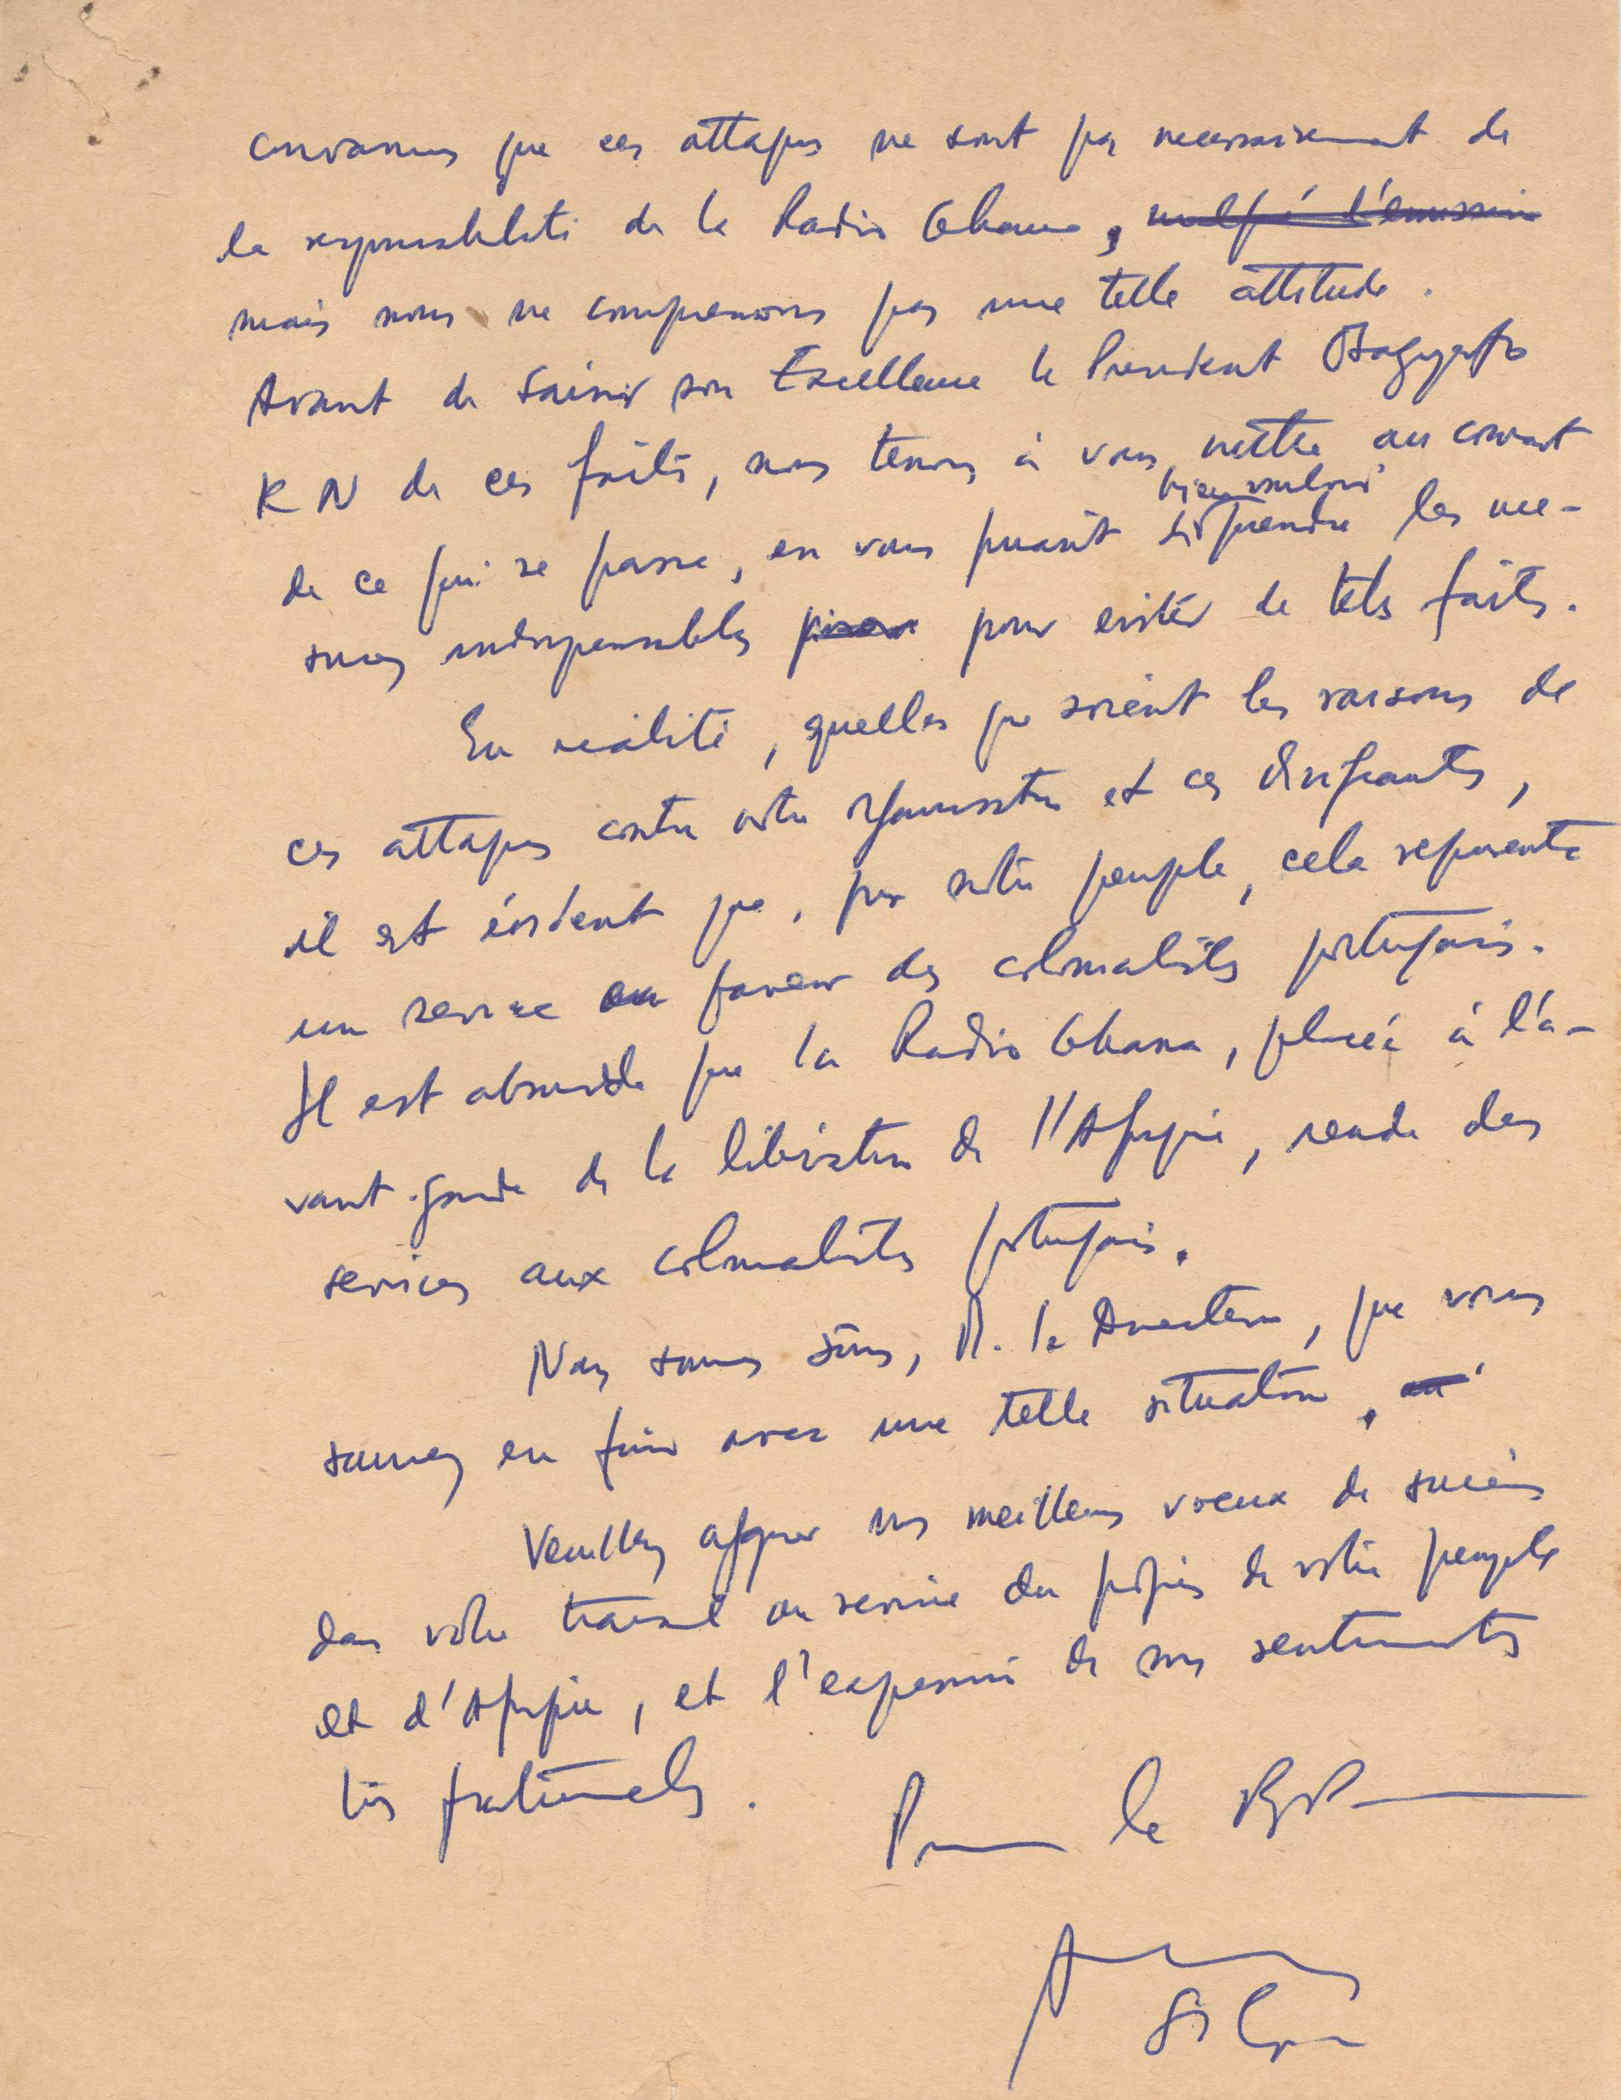 convaincus que ces attaques ne sont pas necessairement de
la responsabilité de la Radio Ghana, malgré l'emission
mais nous ne comprenons pas une telle attitude.
Avant de saisir son Excellence le President Osagyefo
K N de ces faits, nous tenons à vous mettre au courant
bien vouloir
de ce qui se passe, en vous priant de prendre les me-
sures indispensables pour eviter de tels faits.
En réalité, quelles que soient les raisons de
ces attaques contre notre organisation et ces dirigeants,
il est évident que, pour notre peuple, cela represente
un service en faveur des colonialistes portugais.
Il est absurde que la Radio Ghana, placée à l'a-
vant-garde de la libération de l'Afrique, rende des
services aux colonialistes portugais.
Nous sommes sûrs, M. le Directeur, que vous
saurez en finir avec une telle situation,
Veuillez agréer nos meilleurs voeux de succès
dans votre travail au service du progrès de votre peuple
et d'Afrique, et l'expression de nos sentiments
très fraternels.
Pour le